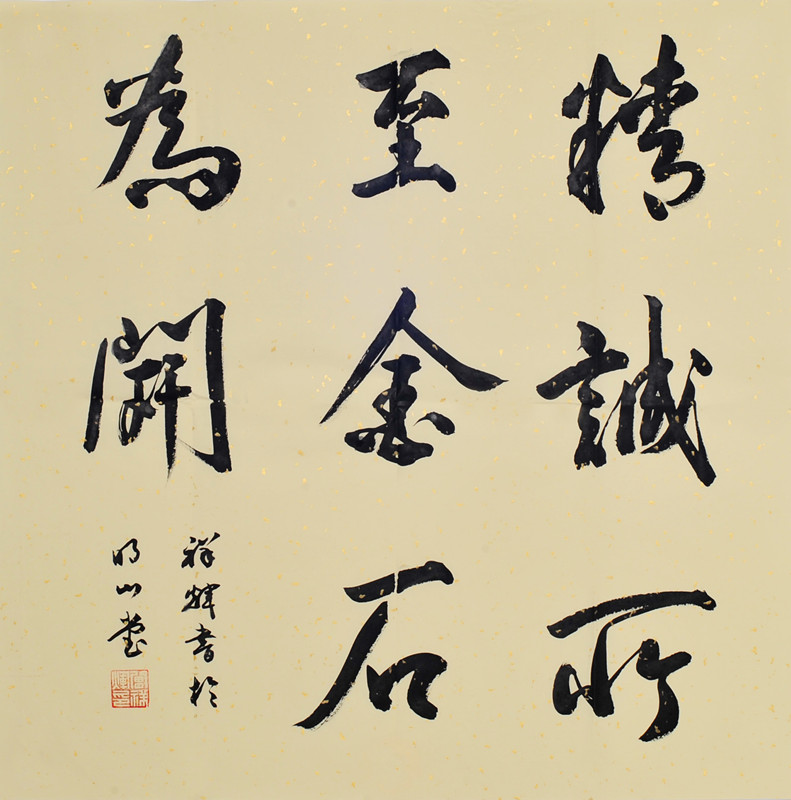 精誠所
至金石
為開
祥輝書於
明山堂